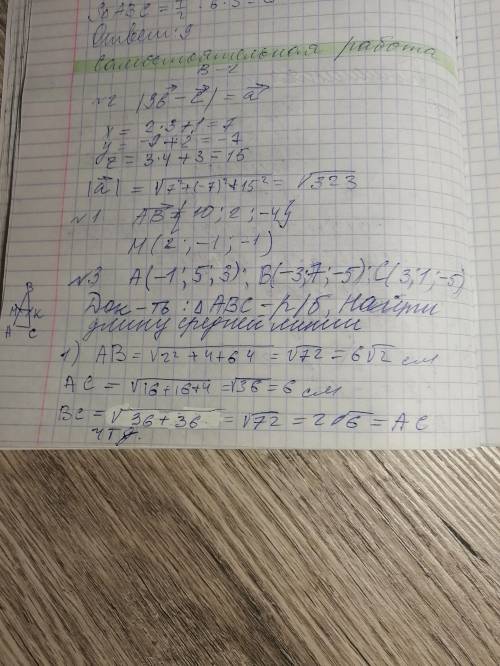 S△ABC = 1/2 · 6 · 3 =
Ответ: 9
Самостоятельная работа
В-2
№2 |3b⃗ - c⃗| = a⃗
x = 2·3+1 = 7
y = -9+2 = -7
z = 3·4+3 = 15
|a⃗| = √7²+(-7)²+15² = √323
№1 AB⃗ {10; 2; -4}
M(2; -1; -1)
№3 A(-1; 5; 3); B(-3; 7; -5); C(3; 1; -5)
Док-ть: △ABC - р/б, Найти
длину средней линии
B
M K
A C
1) AB = √2²+4+64 = √72 = 6√2 см
AC = √16+16+4 = √36 = 6 см
BC = √36+36 = √72 = 2√6 = AC
ЧТД.